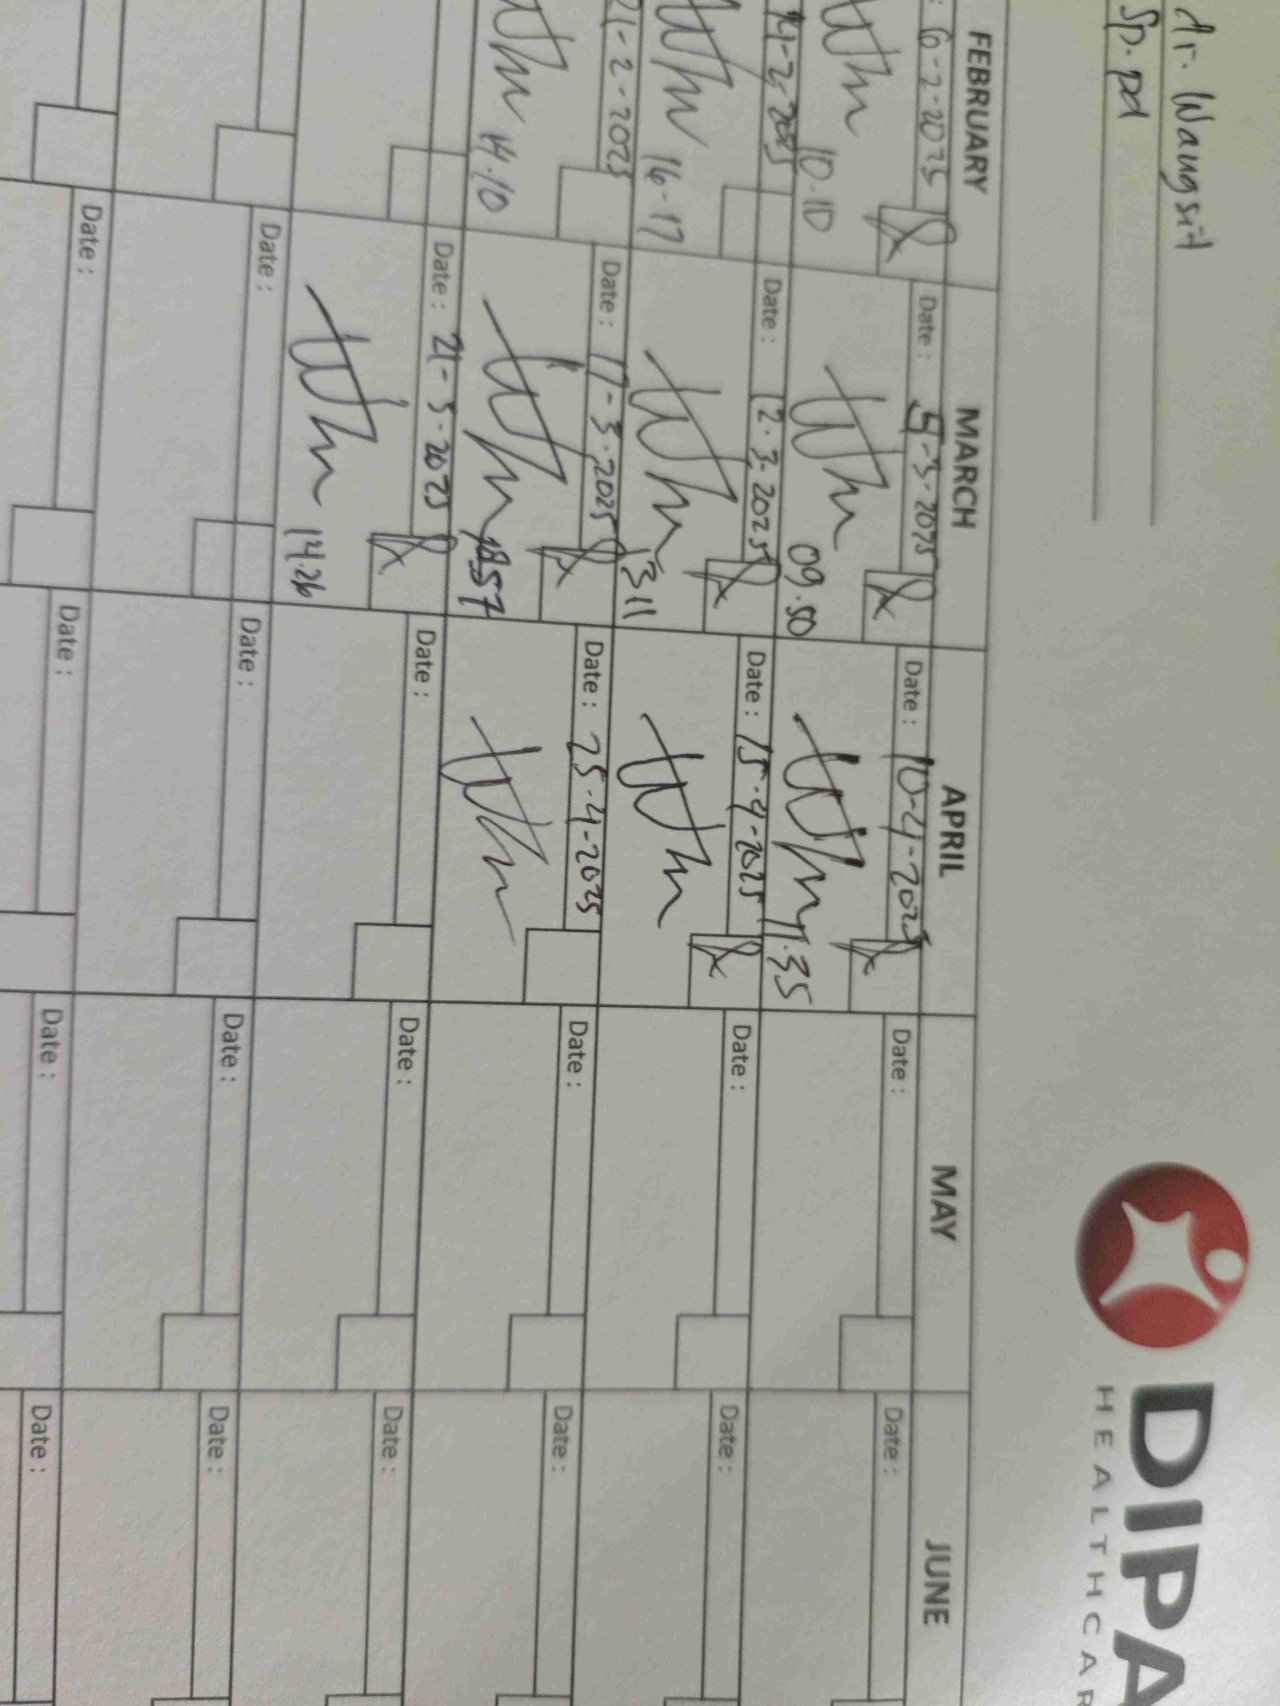 dr. Wangsit
Sp. pd
DIPA
HEALTHCAR
FEBRUARY MARCH APRIL MAY JUNE
: 6-2-2025 Date : 5-3-2025 Date : 10-4-2025 Date : Date :
10.10 09.50 11.35
14-2-2025 Date : 12.3.2025 Date : 15-4-2025 Date : Date :
16-17 1311
21-2-2025 Date : 17-3-2025 Date : 25-4-2025 Date : Date :
14.10 1857
Date : 21-3-2025 Date : Date : Date :
14.26
Date : Date : Date : Date :
Date : Date : Date : Date :